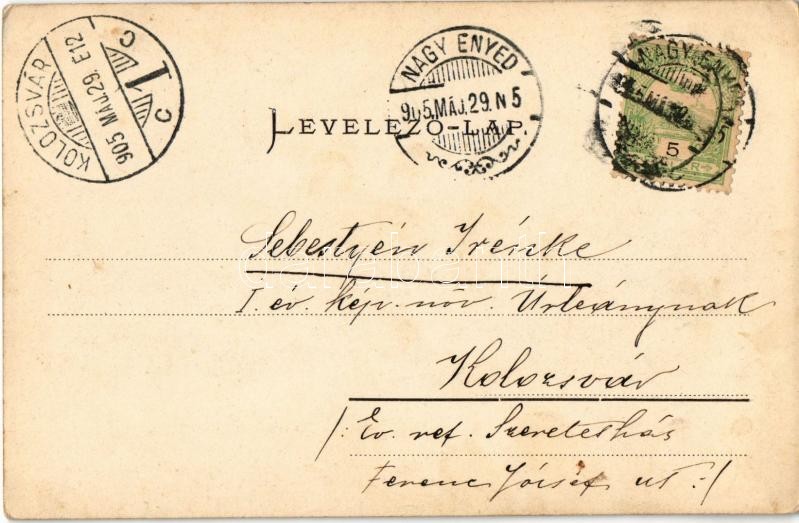 KOLOZSVÁR
905 MÁJ.29. E12
C 1 C
NAGY ENYED
905.MÁJ.29.N5
NAGY-ENYED
5
LEVELEZŐ-LAP.
Sebestyén Irénke
I. év. kép. növ. Úrleánynak
Kolozsvár
/: Ev. ref. Szeretetház
Ferenc József ut :/
darabanth